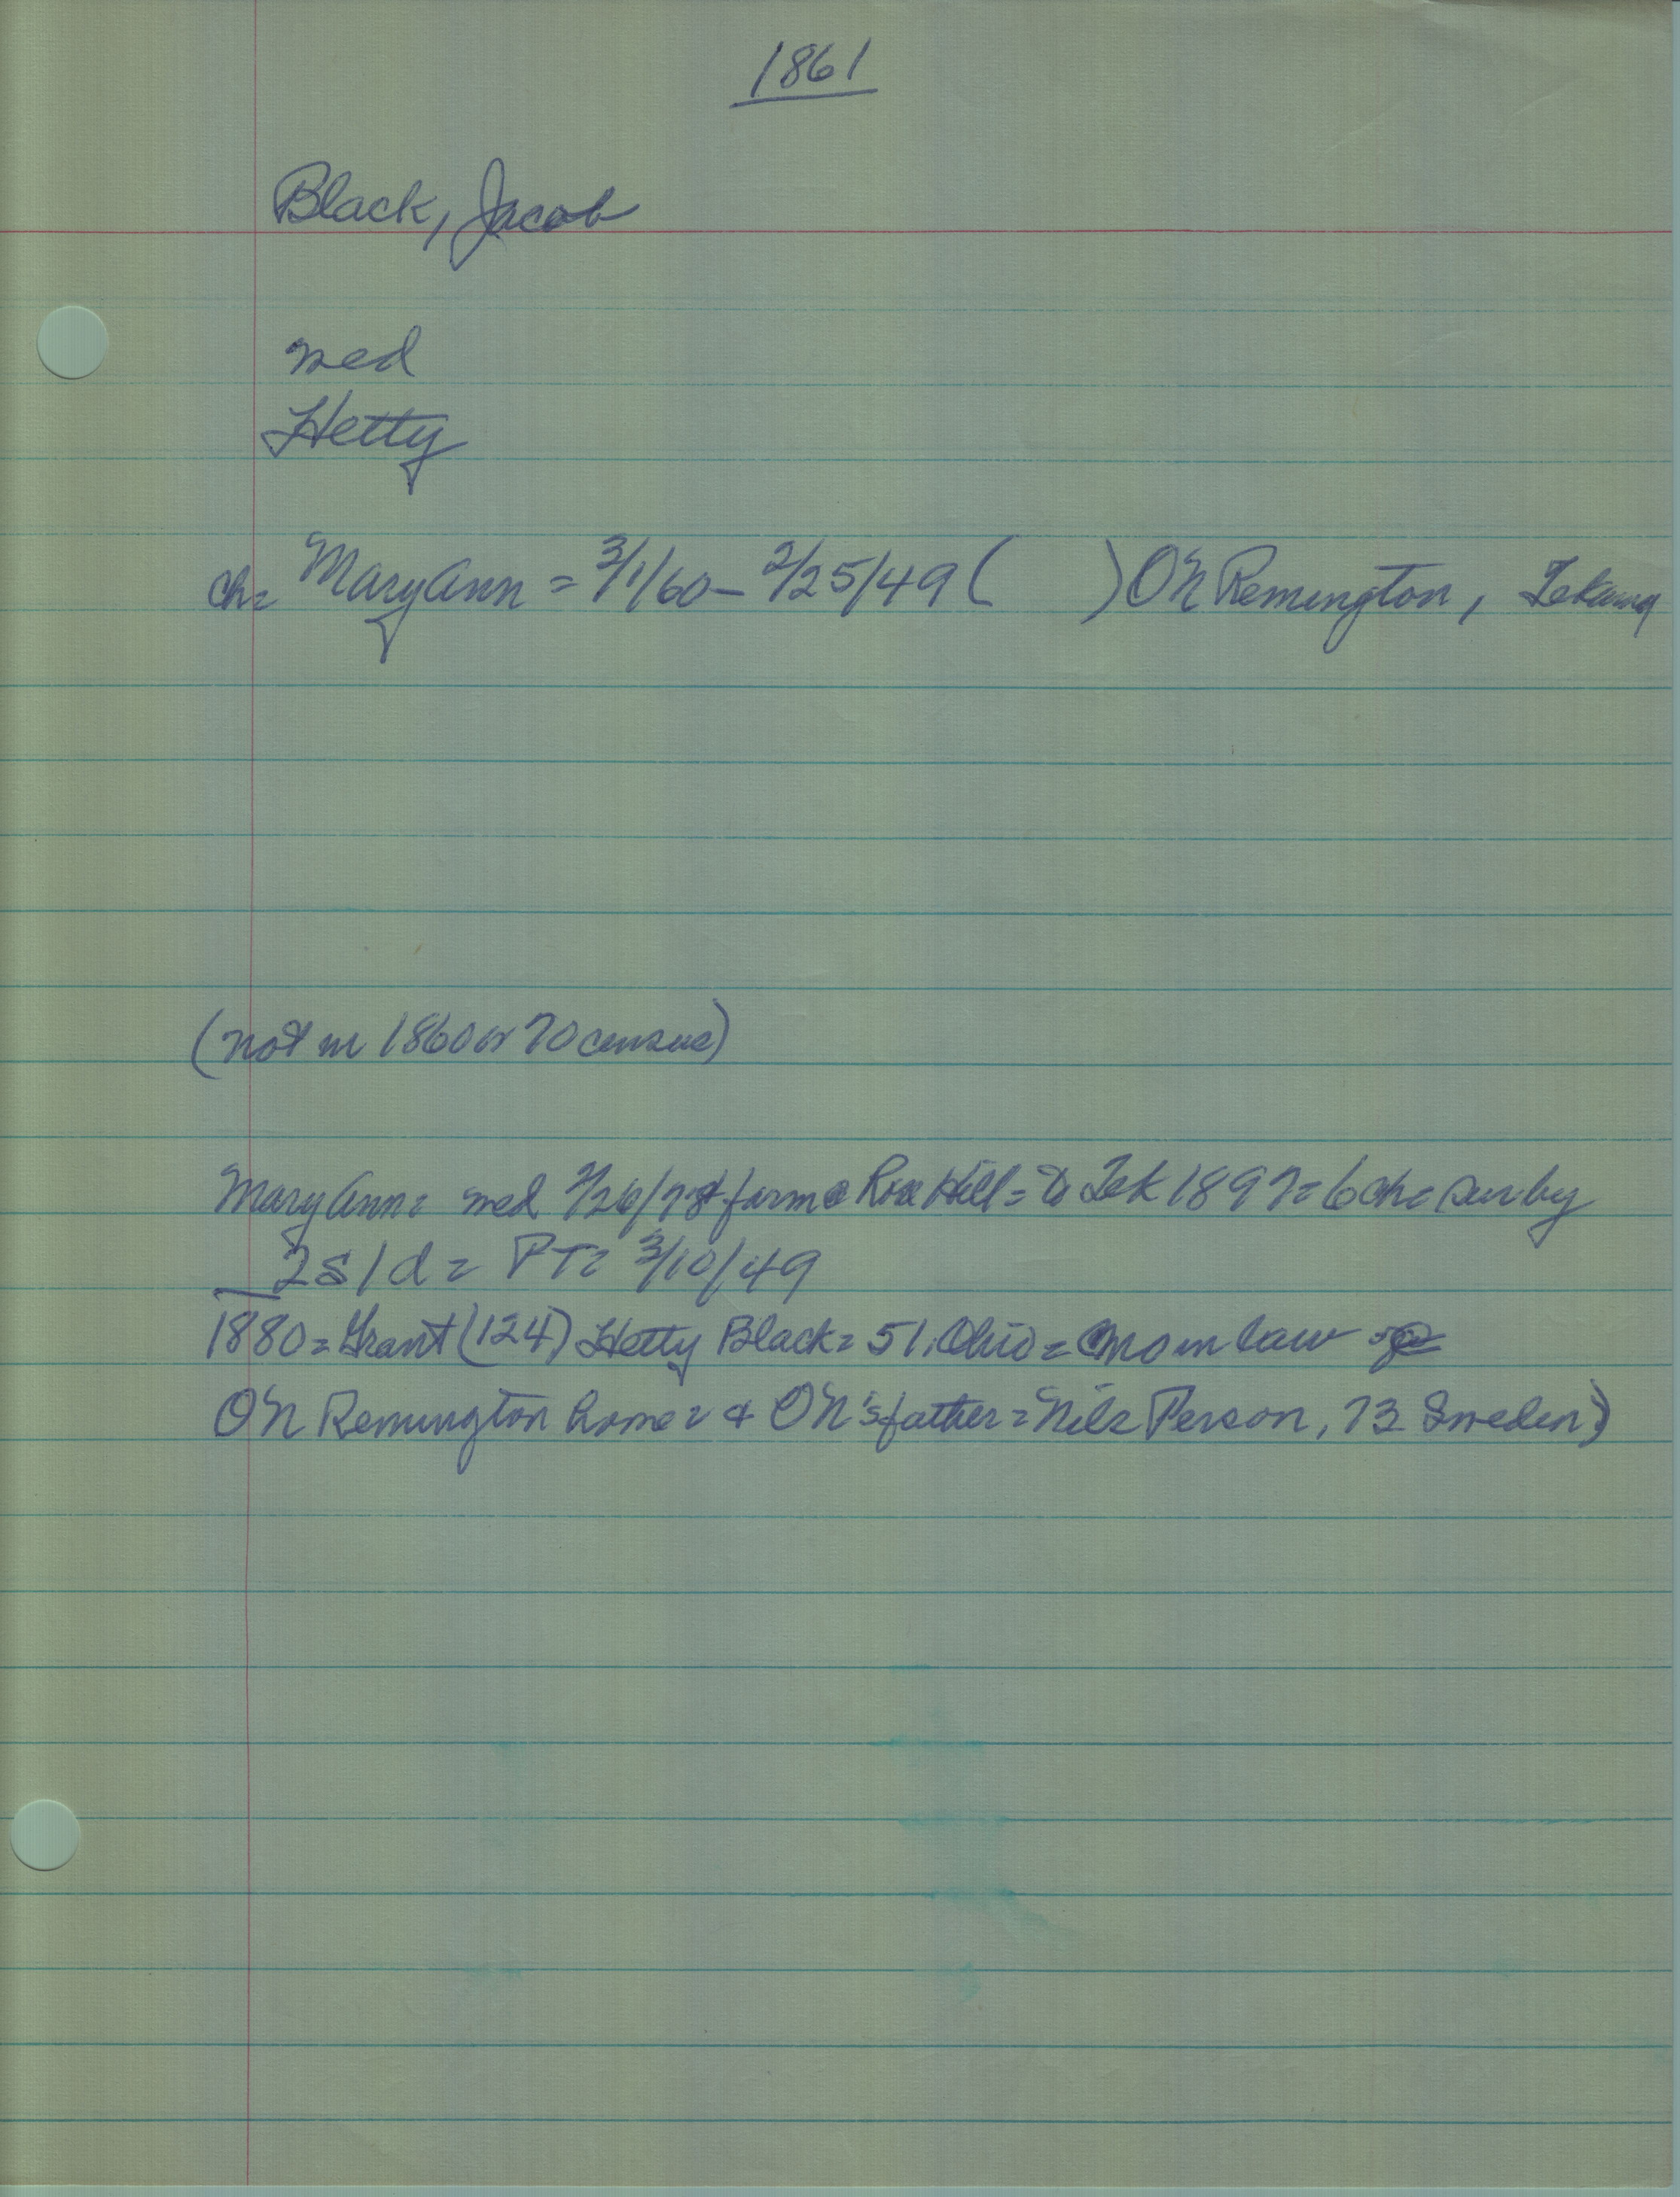 1861
Black, Jacob
med
Hetty
ch= Mary Ann = 3/1/60 - 2/25/49 ( ) O'N Remington, Tekama
(not in 1860 or 70 census)
Mary Ann = med 2/26/78 farm @ Rose Hill = to Tek 1897 = 6 ch = sur by
2s 1d = PT = 3/10/49
1880 = Grant (124) Hetty Black = 51, Ohio = mo in law
O'N Remington home = & O'N's father = Nils Person, 73 Sweden)